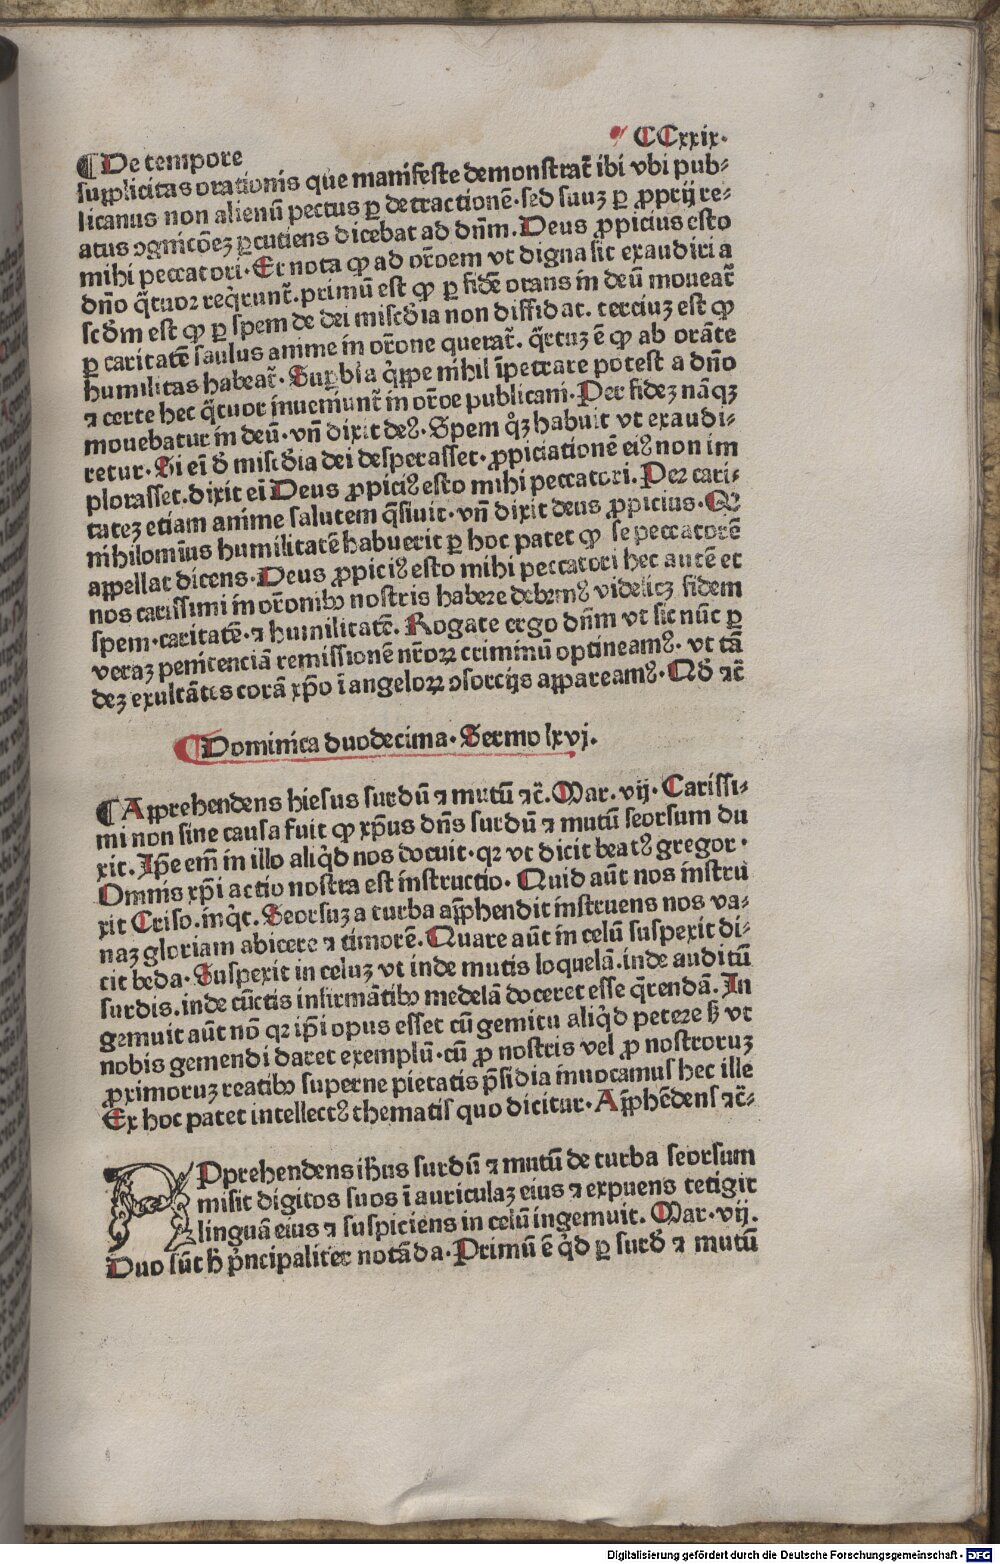 CCxxix.
¶De tempore
supplicitas orationis que manifeste demonstrat̃ ibi vbi pub-
licanus non alienũ pectus ꝑ detractionẽ. sed suuꝫ ꝑ ꝓprij re-
atus ꝯgnicõeꝫ ꝑcutiens dicebat ad dñm. Deus ꝓpicius esto
mihi peccatori. Et nota ꝙ ad or̃oem vt digna sit exaudiri a
dño q̃tuor req̃runt̃. primũ est ꝙ ꝑ fidẽ orans in deũ moueat̃
scd̃m est ꝙ ꝑ spem de dei misc̃dia non diffidat. terciuꝫ est ꝙ
ꝑ caritatẽ saulus anime in or̃one querat̃. q̃rtuꝫ ẽ ꝙ ab orãte
humilitas habeat̃. Suꝑbia q̃ppe nihil ĩpetrare potest a dño
⁊ certe hec q̃tuor inueniunt̃ in or̃oe publicani. Per fideꝫ nãqꝫ
mouebatur in deũ. vñ dixit deꝰ. Spem qͦꝫ habuit vt exaudi-
retur. Si ei̅ d̃ misc̃dia dei desperasset. ꝓpiciationẽ eiꝰ non im
plorasset. dixit ei̅ Deus ꝓpiciꝰ esto mihi peccatori. Per cari-
tateꝫ etiam anime salutem q̃siuit. vñ dixit deus ꝓpicius. Qꝫ
nihilomiꝰus humilitatẽ habuerit ꝑ hoc patet ꝙ se peccatorẽ
appellat dicens. Deus ꝓpiciꝰ esto mihi peccatori hec autẽ et
nos carissimi in or̃onibꝰ nostris habere debemꝰ videlicꝫ fidem
spem. caritatẽ. ⁊ humilitatẽ. Rogate ergo dñm vt sic nũc ꝑ
veraꝫ penitenciã remissionẽ nr̃oꝝ criminũ optineamꝰ. vt tã
deꝫ exultãtes corã xp̃o ĩ angeloꝝ ꝯsorcijs appareamꝰ. Qd̃ ⁊c̃
¶Dominica duodecima. Sermo lxvj.
¶Apprehendens hiesus surdũ ⁊ mutũ ⁊c̃. Mar. vij. Carissi-
mi non sine causa fuit ꝙ xp̃us dñs surdũ ⁊ mutũ seorsum du
xit. Ip̃e em̃ in illo aliq̃d nos docuit. qꝛ vt dicit beatꝰ gregor.
Omnis xp̃i actio nostra est instructio. Quid aũt nos instru
xit Criso. inq̃t. Seorsuꝫ a turba app̃hendit instruens nos va-
naꝫ gloriam abicere ⁊ timorẽ. Quare aũt in celũ suspexit di-
cit beda. Suspexit in celuꝫ vt inde mutis loquelã. inde auditũ
surdis. inde cũctis infirmãtibꝰ medelã doceret esse q̃rendã. In
gemuit aũt nõ qꝛ ip̃i opus esset cũ gemitu aliq̃d petere ß vt
nobis gemendi daret exemplũ. cũ ꝓ nostris vel ꝓ nostroruꝫ
ꝓximoruꝫ reatibꝰ superne pietatis p̃sidia inuocamus hec ille
Ex hoc patet intellectꝰ thematis quo dicitur. App̃hẽdens ⁊c̃-
APprehendens ih̃us surdũ ⁊ mutũ de turba seorsum
misit digitos suos ĩ auriculaꝫ eius ⁊ expuens tetigit
linguã eius ⁊ suspiciens in celũ ingemuit. Mar. vij.
Duo sũt h̃ p̃ncipaliter notãda. Primũ ẽ q̃d ꝑ surd̃ ⁊ mutũ
Digitalisierung gefördert durch die Deutsche Forschungsgemeinschaft - DFG